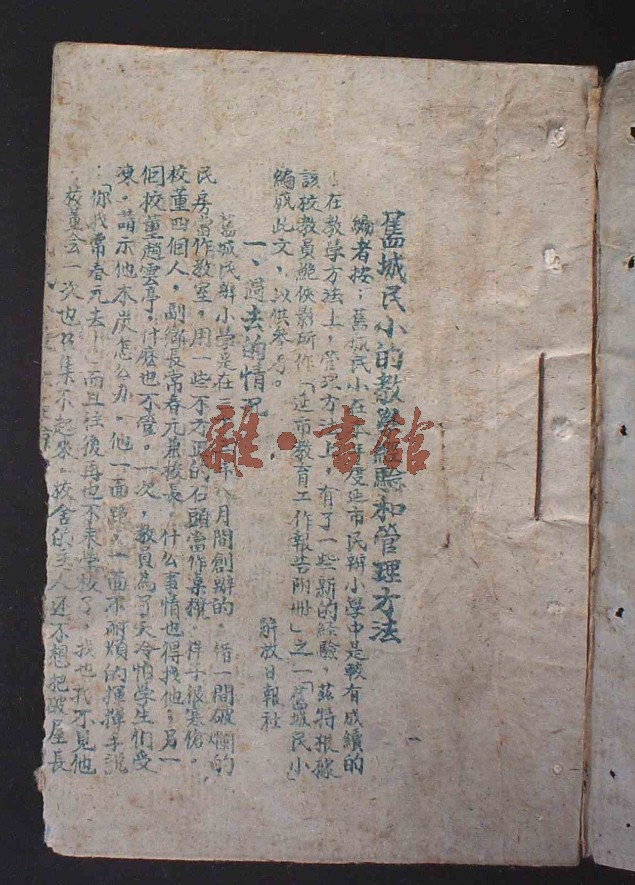 舊城民小的教學經驗和管理方法
編者按：舊城民小在本年度延市民辦小學中是較有成績的
，在教學方法上，管理方法上，有了一些新的經驗，茲特根據
該校教員鮑俠影所作「延市教育工作報告附冊」之一「舊城民小」
編成此文，以供參考。
解放日報社
一、過去的情況
舊城民辦小學是在三 年八月間創辦的。借一間破爛的
民房當作教室，用一些不方正的石頭當作桌櫈，样子很寒傖。
校董四個人，副鄉長常春元兼校長，什么事情也得找他；另一
個校董趙雲亭，什麼也不管。一次，教員為了天冷怕学生們受
凍，請示他木炭怎么办。他一面跑，一面不耐煩的揮揮手說
：「你找常春元去！」而且往後再也不来学校了，找也找不見他
。校董会一次也召集不起來。校舍的主人还不想把破屋長
雜·書館